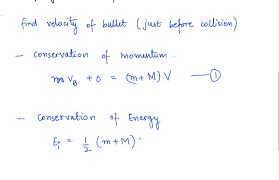 find velocity of bullet (just before collision)
- conservation of momentum..
m V_B + 0 = (m+M) V —①
- conservation of Energy
E_i = 1/2 (m+M) .